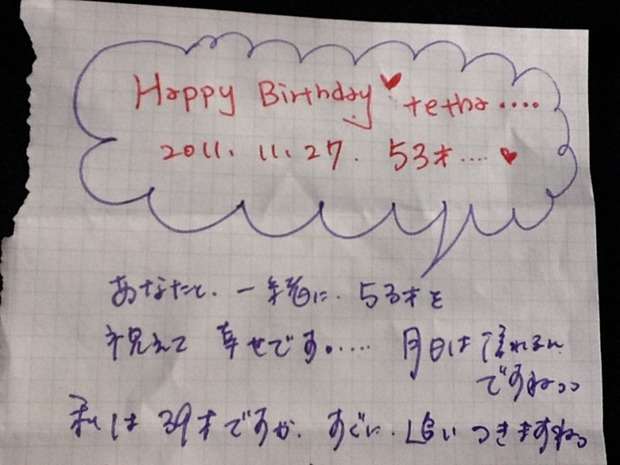 Happy Birthday ♥ tetha....
2011. 11. 27. 53才.... ♥
あなたと、一緒に、53才を
祝えて 幸せです。..... 月日は流れるん
ですねっっ
私は39才ですが、すぐに、 つきますねっ